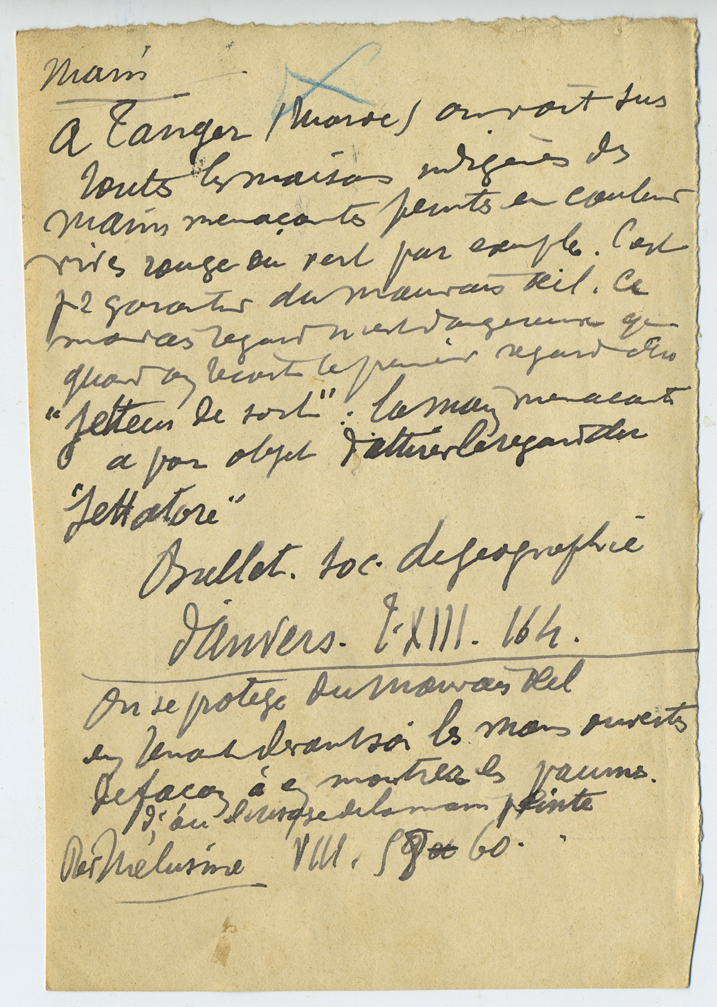 Main
A Tanger (Maroc) on voit sur
toutes les maisons indigènes des
mains menaçantes peintes en couleur
vives rouge ou vert par exemple. C'est
pr garantir du mauvais œil. Ce
mauvais regard n'est dangereux que
quand on reçoit le premier regard du
"jetteur de sort": la main menaçante
a par objet d'attirer le regard du
"Jettatore"
Bullet. Soc. de geographie
d'Anvers. T. XIII. 164.
On se protege du mauvais œil
en tenant devant soi les mains ouvertes
de façon à en montrer les paumes.
d'où l'usage de la main peinte
Mélusine VIII. 59 60.